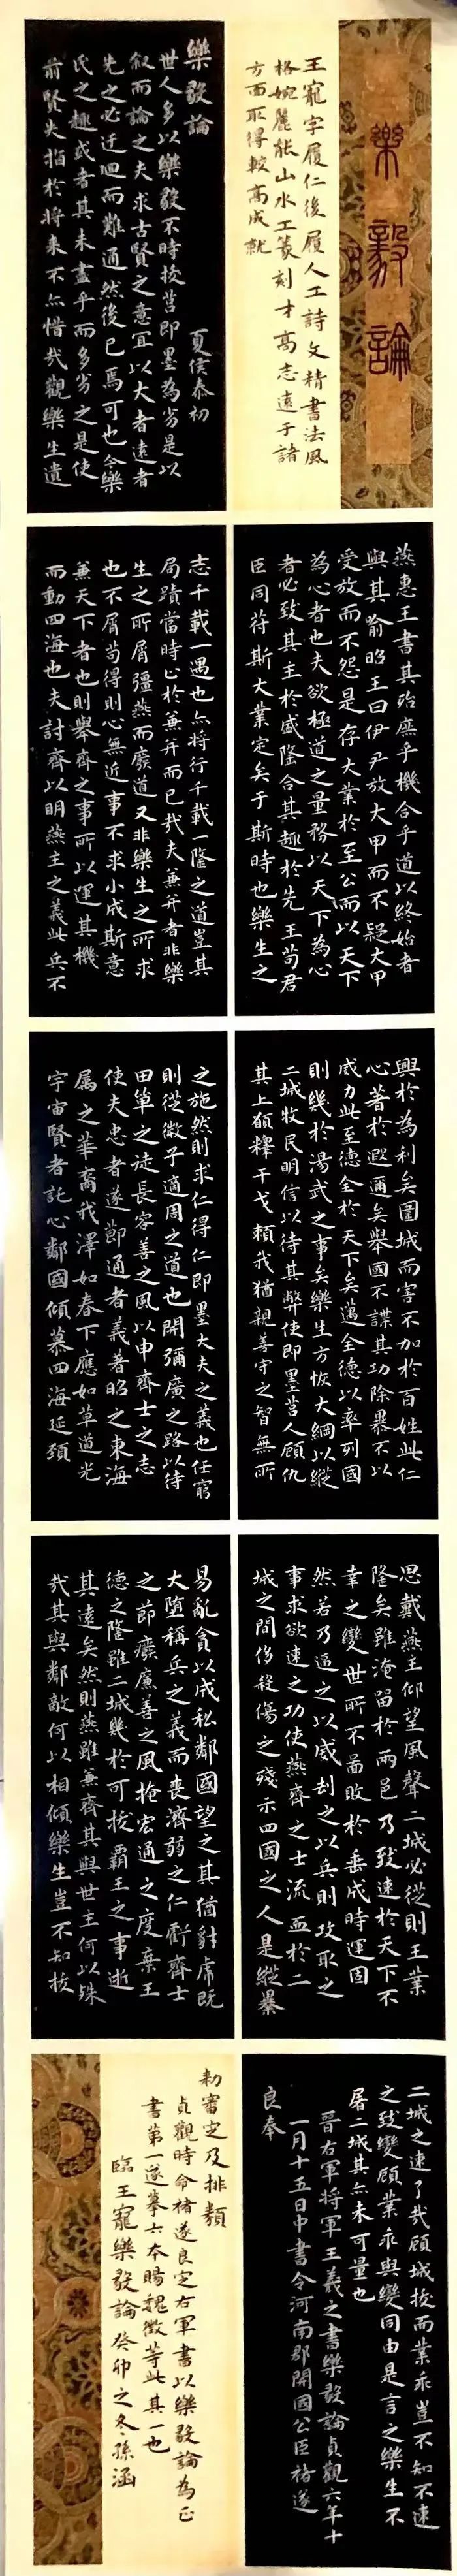 樂毅論
王寵字履仁後履人工詩文精書法風
格婉麗能山水工篆刻才高志遠于諸
方面取得較高成就
樂毅論
夏侯泰初
世人多以樂毅不時拔莒即墨為劣是以
叙而論之夫求古賢之意宜以大者遠者
先之必迂迴而難通然後已焉可也今樂
氏之趣或者其未盡乎而多劣之是使
前賢失指於将来不亦惜哉觀樂生遺
燕惠王書其殆庶乎機合乎道以終始者
與其喻昭王曰伊尹放大甲而不疑大甲
受放而不怨是存大業於至公而以天下
為心者也夫欲極道之量務以天下為心
者必致其主於盛隆合其趣於先王苟君
臣同符斯大業定矣于斯時也樂生之
志千載一遇也亦将行千載一隆之道豈其
局蹟當時止於兼并而已哉夫兼并者非樂
生之所屑彊燕而廢道又非樂生之所求
也不屑苟得則心無近事不求小成斯意
兼天下者也則舉齊之事所以運其機
而動四海也夫討齊以明燕主之義此兵不
興於為利矣圍城而害不加於百姓此仁
心著於遐邇矣舉國不謀其功除暴不以
威力此至德全於天下矣邁全德以率列國
則幾於湯武之事矣樂生方恢大綱以縱
二城牧民明信以待其弊使即墨莒人顧仇
其上願釋干戈賴我猶親善守之智無所
之施然則求仁得仁即墨大夫之義也任窮
則從微子適周之道也開彌廣之路以待
田單之徒長容善之風以申齊士之志
使夫忠者遂節通者義著昭之東海
属之華裔我澤如春下應如草道光
宇宙賢者託心鄰國傾慕四海延頸
思戴燕主仰望風聲二城必從則王業
隆矣雖淹留於兩邑乃致速於天下不
幸之變世所不啚敗於垂成時運固
然若乃逼之以威刦之以兵則攻取之
事求欲速之功使燕齊之士流血於二
城之間侈殺傷之殘示四國之人是縱暴
易亂貪以成私鄰國望之其猶豺虎既
大堕稱兵之義而喪濟弱之仁虧齊士
之節癈廉善之風掩宏通之度棄王
德之隆雖二城幾於可拔霸王之事逝
其遠矣然則燕雖兼齊其與世主何以殊
哉其與鄰敵何以相傾樂生豈不知拔
二城之速了哉顧城拔而業乖豈不知不速
之致變顧業乖與變同由是言之樂生不
屠二城其亦未可量也
晉右軍将軍王羲之書樂毅論貞觀六年十
一月十五日中書令河南郡開國公臣褚遂
良奉
勑審定及排類
貞觀時命褚遂良定右軍書以樂毅論為正
書第一遂摹六本賜魏徵等此其一也
臨王寵樂毅論 癸卯之冬孫涵